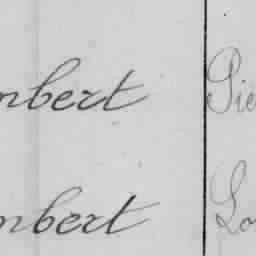 mbert Pie
mbert Lo